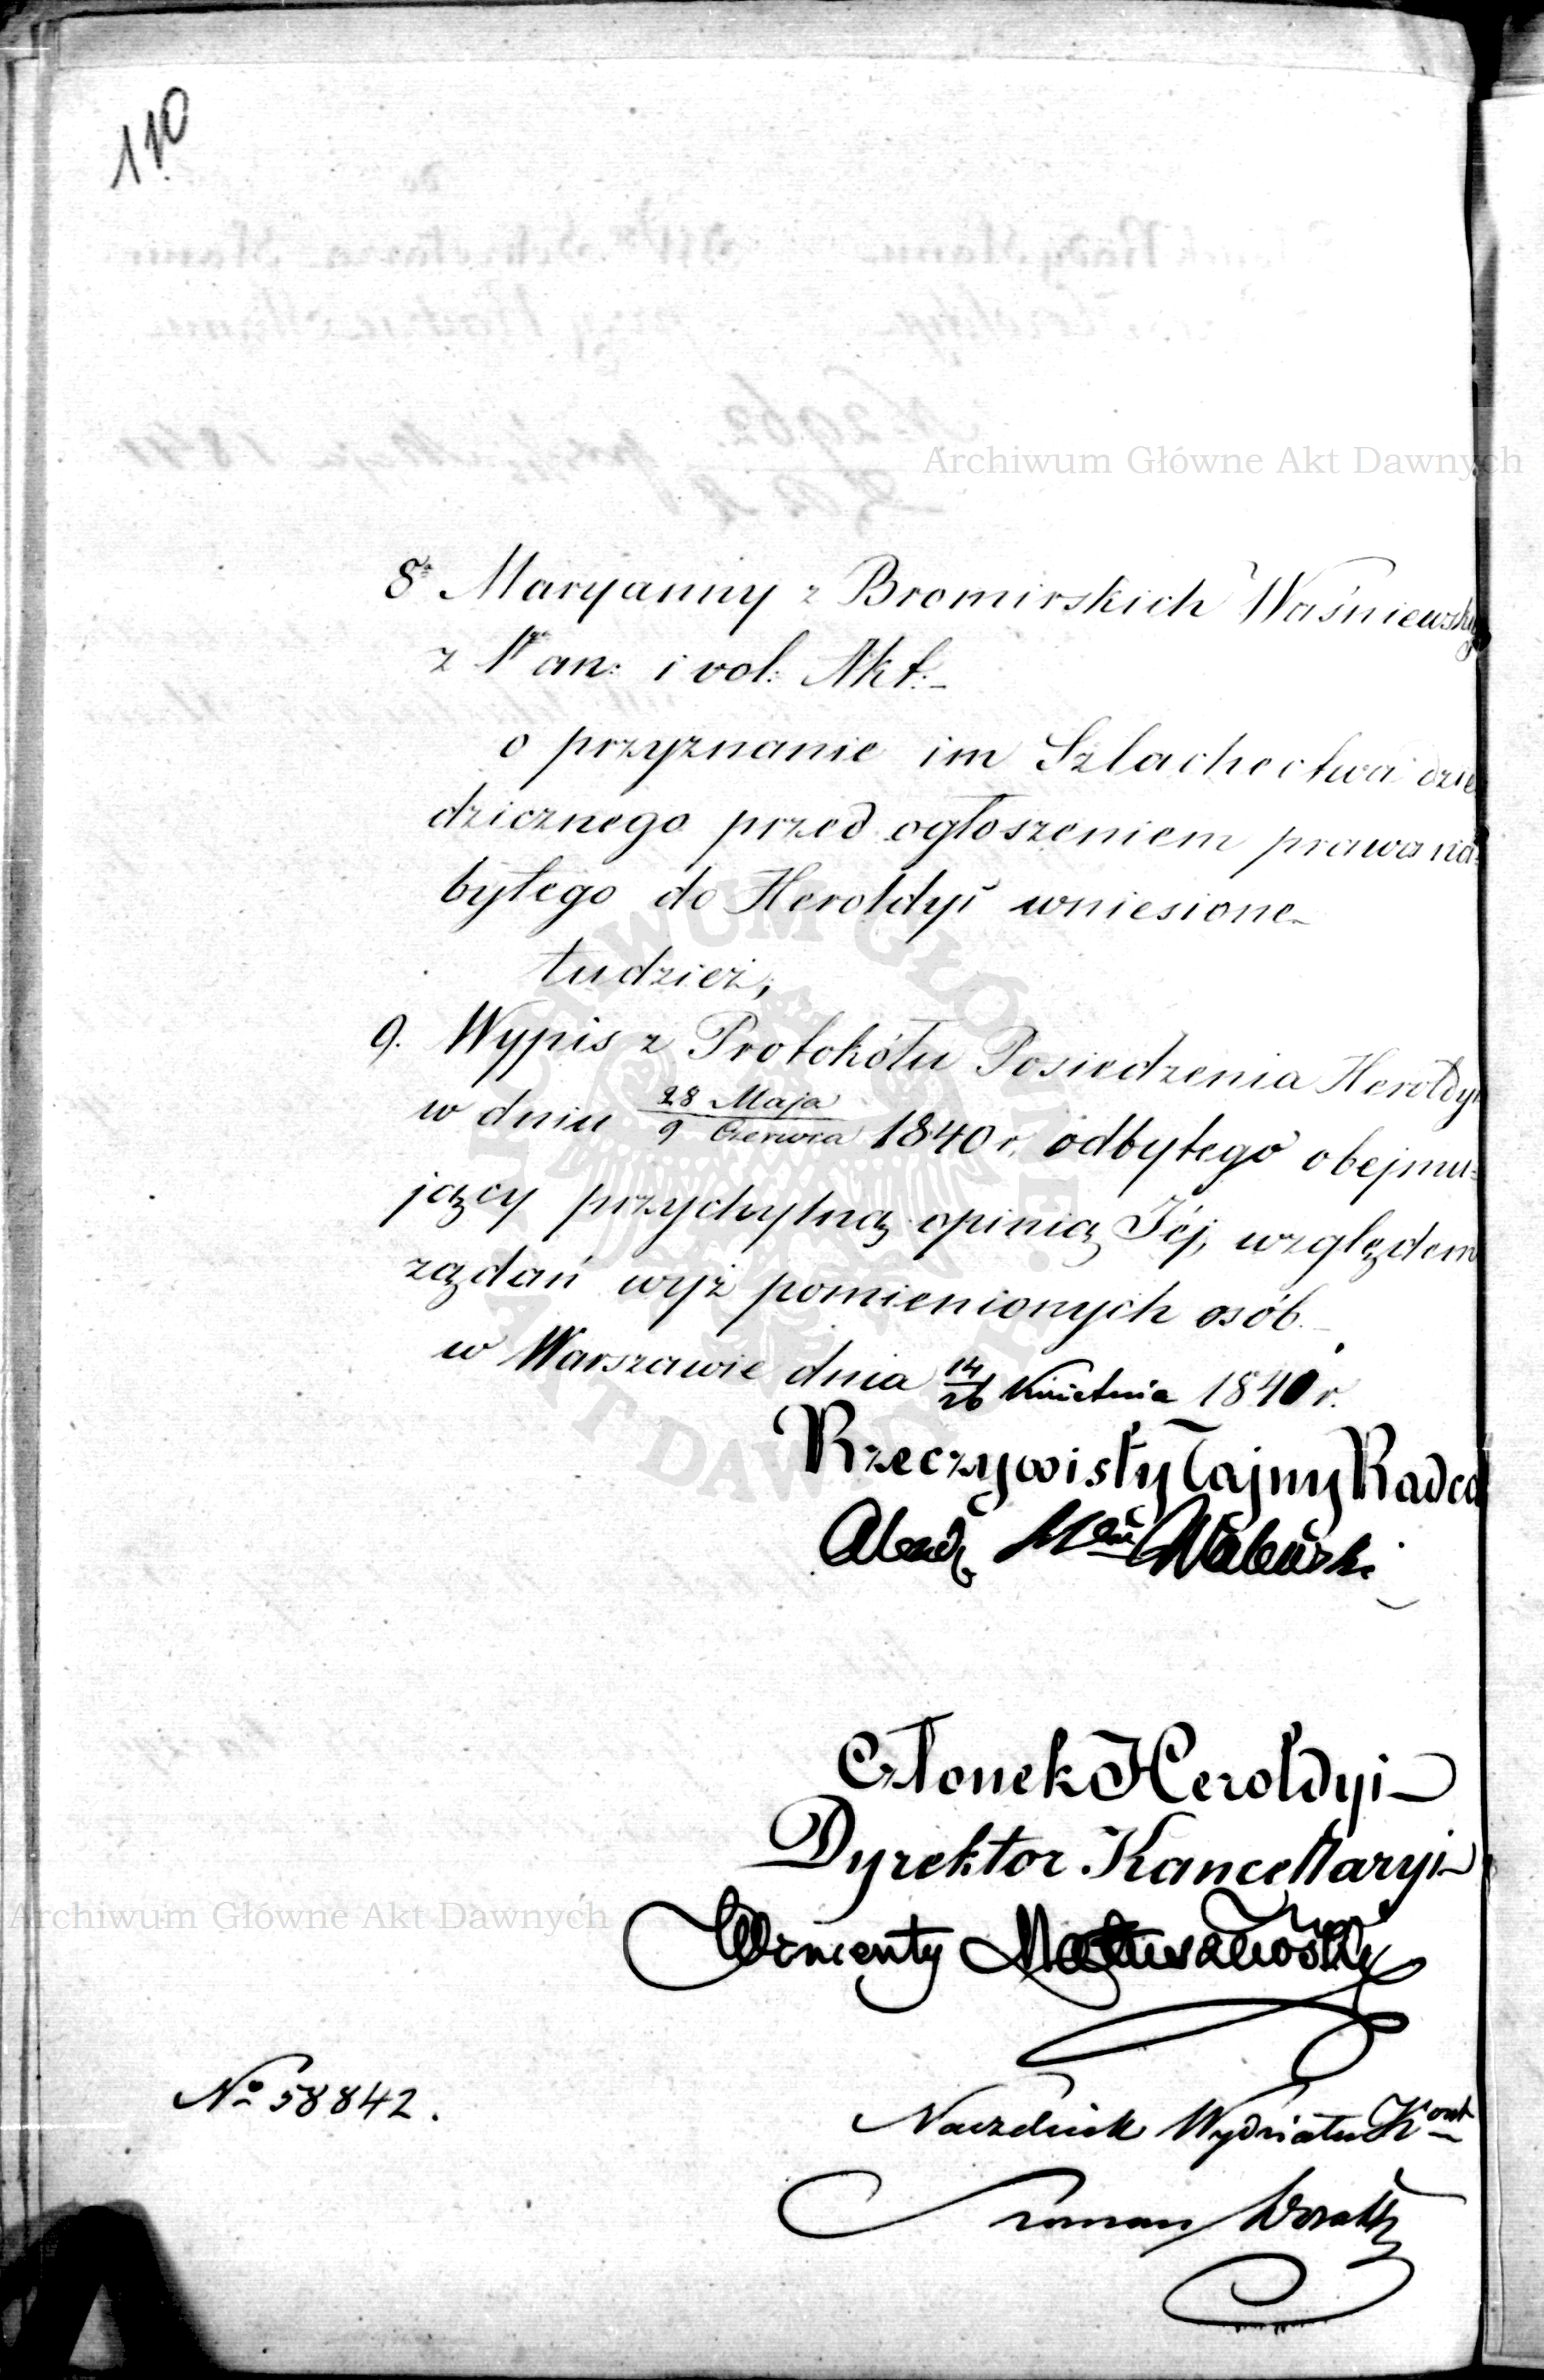 110
Archiwum Główne Akt Dawnych
8° Maryanny z Bromirskich Waśniewskiej
z Nrem an: i vol: Akt:
o przyznanie im Szlachectwa dzie
dzicznego przed ogłoszeniem prawa na
bytego do Heroldyi wniesione
tudzież,
9. Wypis z Protokółu Posiedzenia Heroldyi
w dniu 28 Maja / 9 Czerwca 1840 r. odbytego obejmu=
jący przychylną opinią Jéj, względem
żądań wyż pomienionych osób.
w Warszawie dnia 14/26 Kwietnia 1841 r.
Rzeczywisty Tajny Radca
Członek Heroldyi
Dyrektor Kancellaryi
Archiwum Główne Akt Dawnych
Wincenty Matuszewski
No 58842.
Naczelnik Wydziału
Roman
ARCHIWUM GŁÓWNE AKT DAWNYCH